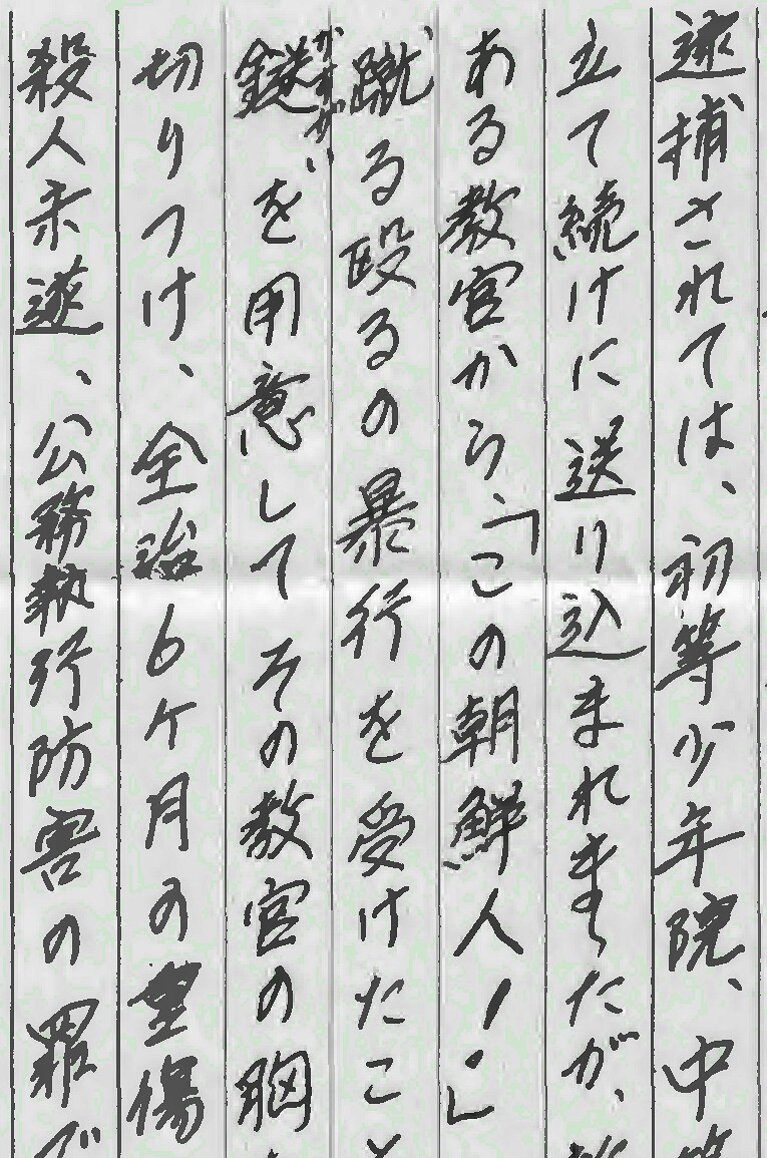 逮捕されては、初等少年院、中等
立て続けに送り込まれましたが、
ある教官から、「この朝鮮人!」
蹴る殴るの暴行を受けたこと
鎹かすがいを用意してその教官の胸
切りつけ、全治6ケ月の重傷
殺人未遂、公務執行防害の罪で